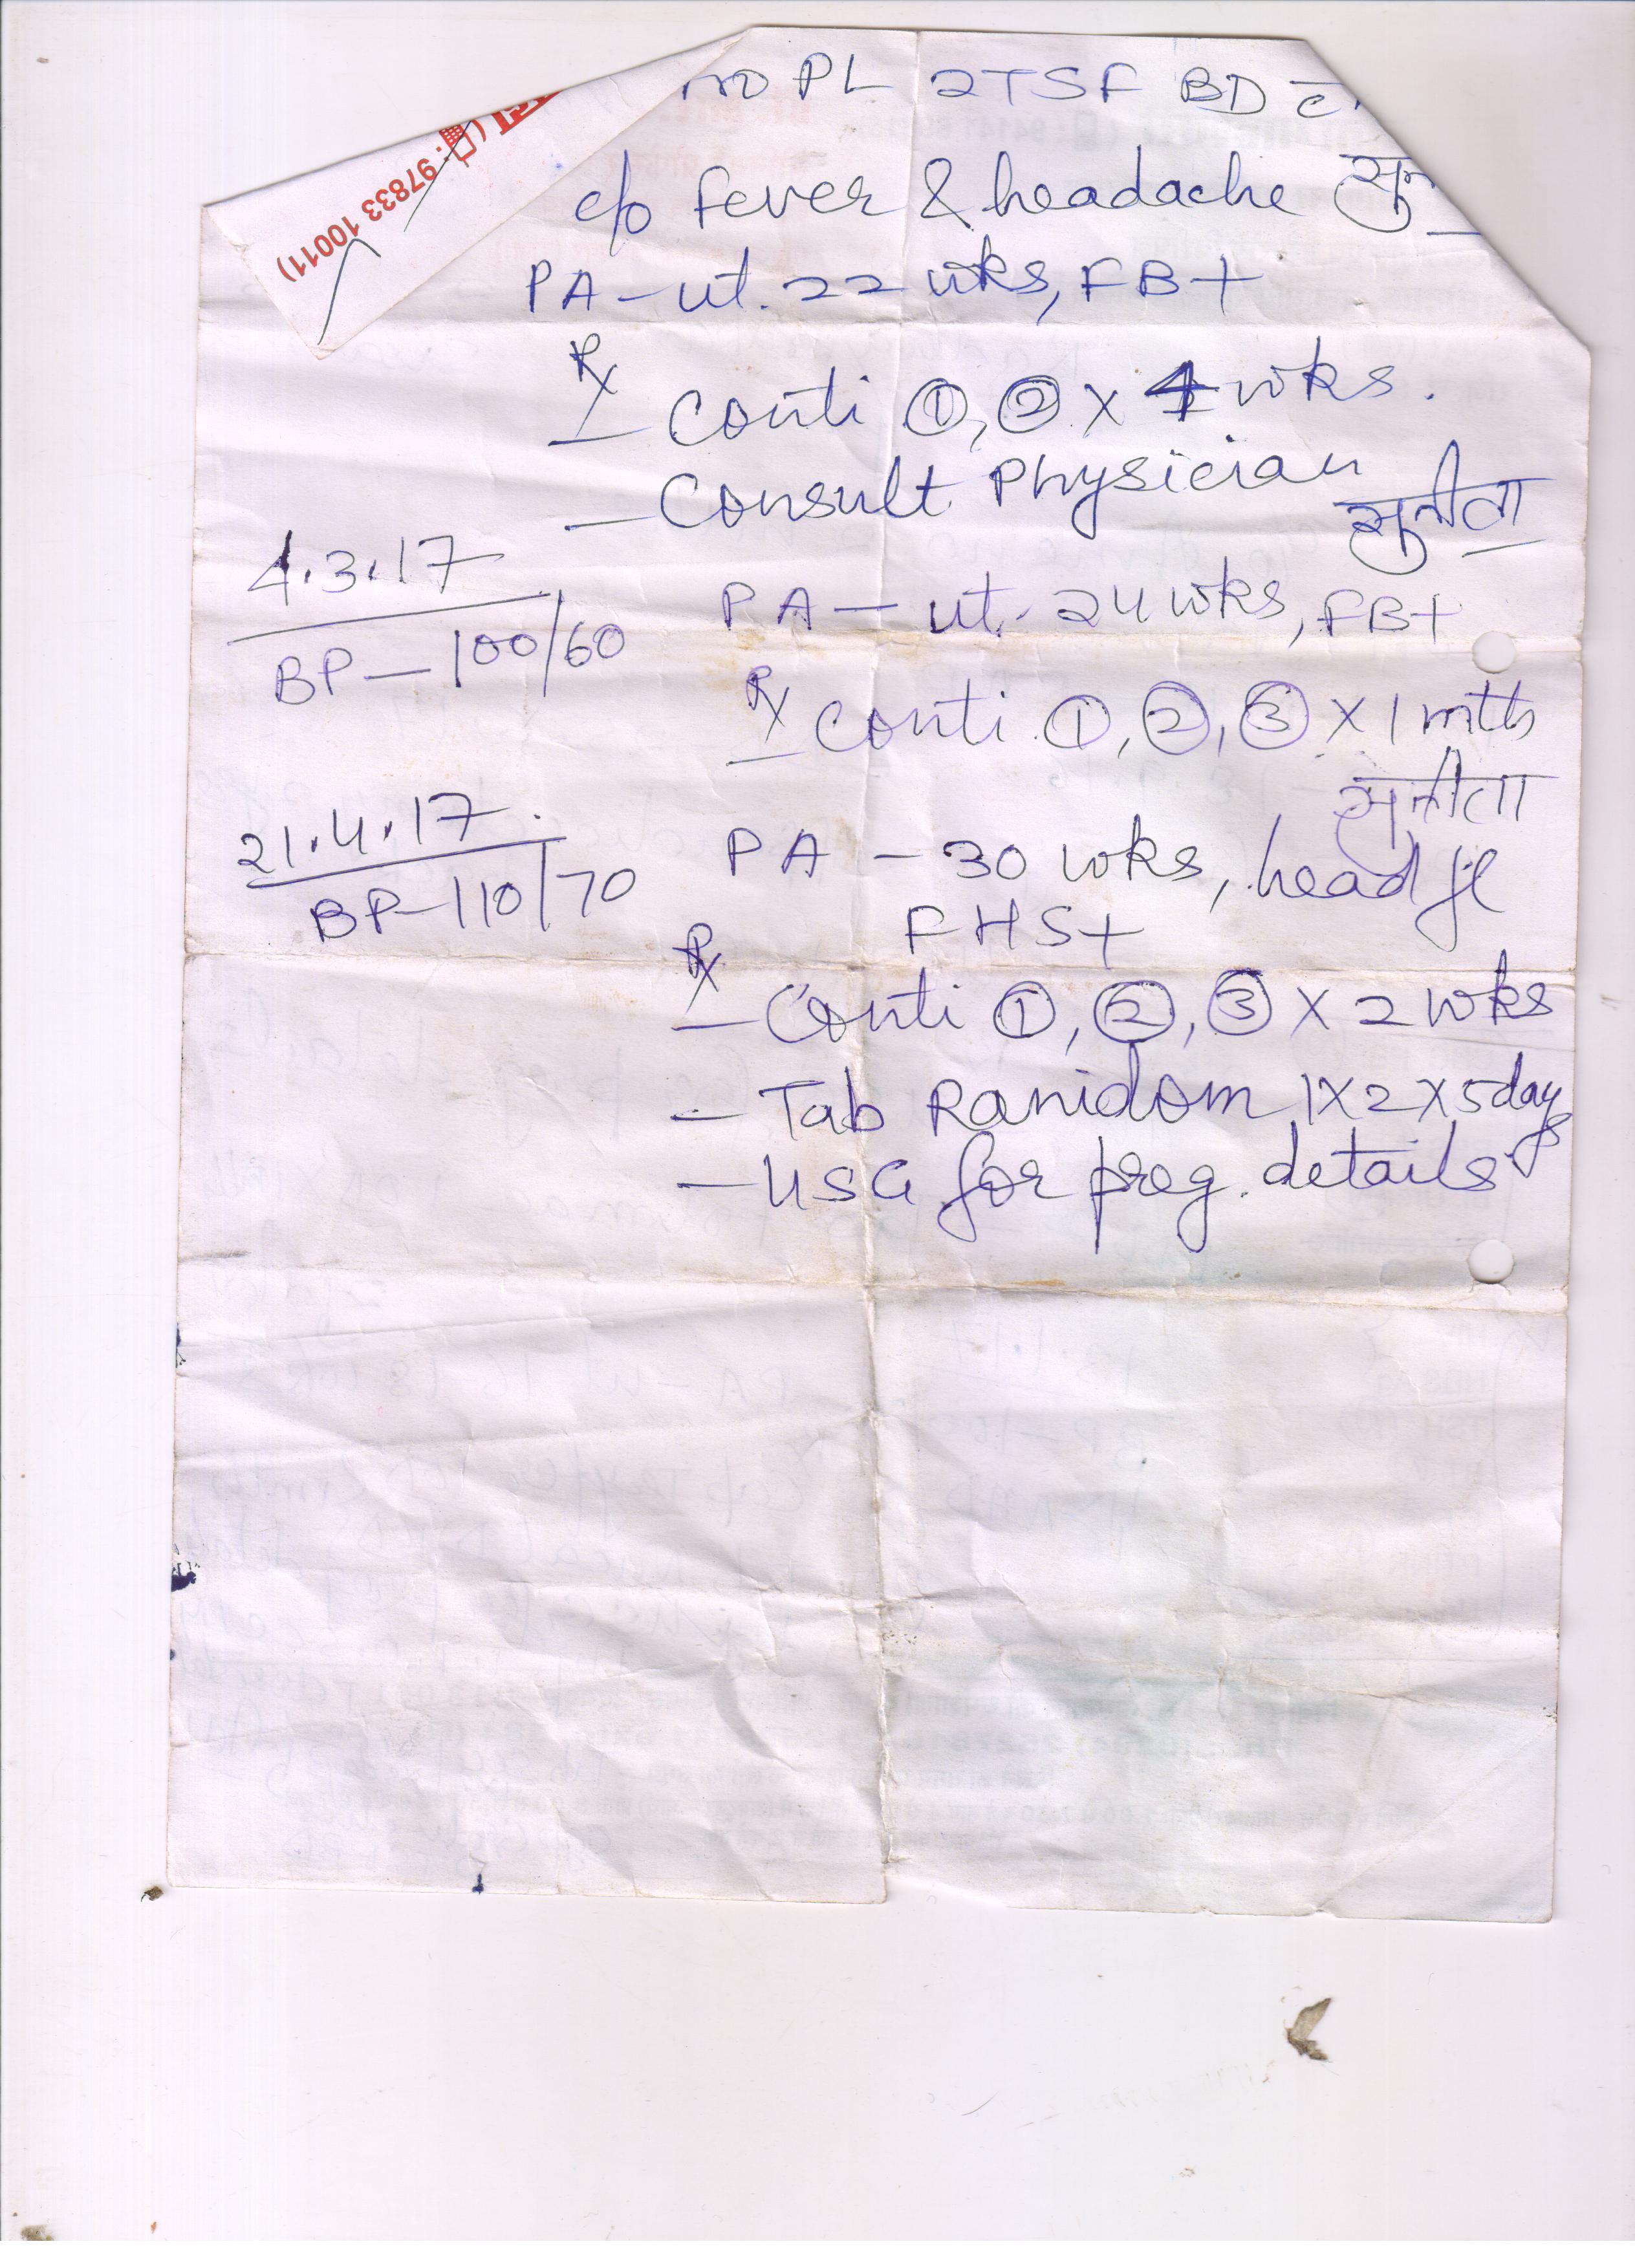 PL 2TSF BD
c/o fever & headache
PA - ut. 22 wks, FB+
Rx
- Conti ①, ② x 4 wks.
- Consult Physician
सुनीता
4.3.17
BP - 100/60
PA - ut. 24 wks, FB+
Rx
- Conti ①, ②, ③ x 1 mth
सुनीता
21.4.17
BP - 110/70
PA - 30 wks, head
FHS+
Rx
- Conti ①, ②, ③ x 2 wks
- Tab Ranidom 1x2x5days
- USG for preg. details
: 97833 10011)